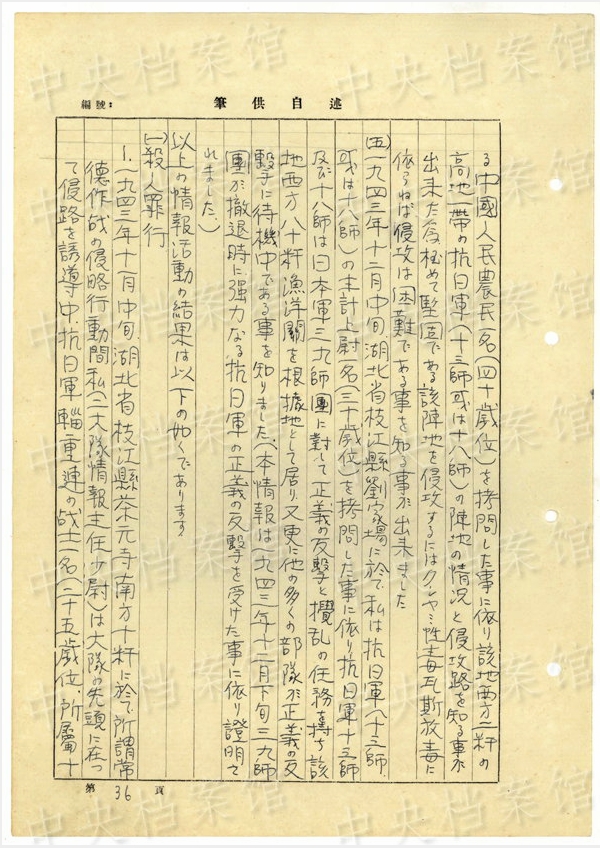 中央档案馆 中央档案馆
編號:
筆供自述
る中國人民農民一名(四十歲位)を拷問した事に依り該地西方二粁の
高地一帶の抗日軍(十三師或は十八師)の陣地の情況と侵攻路を知る事が
出来た為極めて堅固である該陣地を侵攻するにはクシャミ性毒瓦斯放毒に
依らねば侵攻は困難である事を知る事が出来ました
(五)一九四三年十二月中旬湖北省枝江縣劉家場に於て私は抗日軍(十三師
或は十八師)の主計上尉一名(三十歲位)を拷問した事に依り抗日軍十三師
及び十八師は日本軍三九師團に対して正義の反擊と攪乱の任務を持ち該
地西方八十粁漁洋關を根據地として居り又更に他の多くの部隊が正義の反
擊手に待機中である事を知りました、(本情報は一九四三年十二月下旬三九師
團が撤退時に強力なる抗日軍の正義の反擊を受けた事に依り證明さ
れました、)
以上の情報活動の結果は以下の如くであります
(一)殺人罪行
1.一九四三年十一月中旬湖北省枝江縣茶元寺南方十粁に於て所謂常
德作战の侵略行動間私(二大隊情報主任少尉)は大隊の先頭に在っ
て侵路を誘導中、抗日軍輜重連の战士一名(二十五歲位、所屬十
第36頁
中央档案馆 中央档案馆